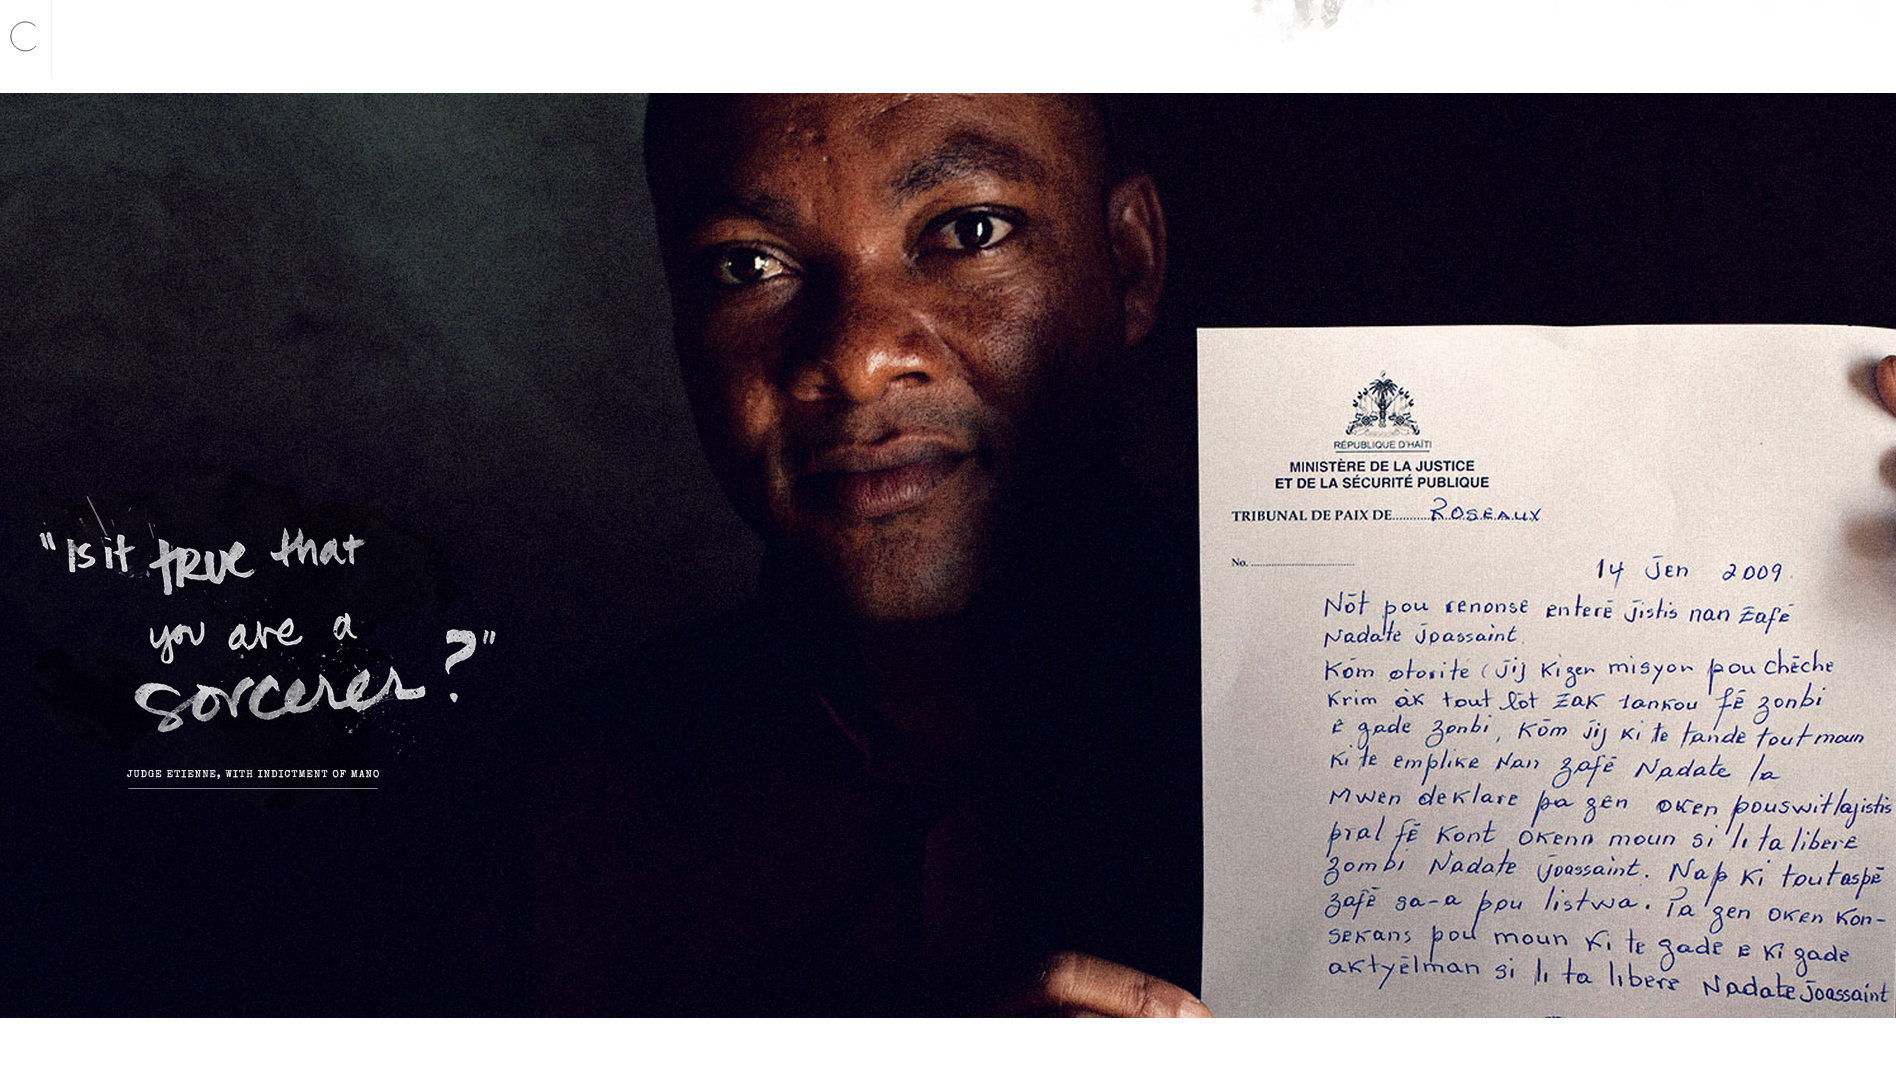 "Is it true that
you are a
sorcerer?"
JUDGE ETIENNE, WITH INDICTMENT OF MANO
RÉPUBLIQUE D'HAÏTI
MINISTÈRE DE LA JUSTICE
ET DE LA SÉCURITÉ PUBLIQUE
TRIBUNAL DE PAIX DE ROSEAUX
No.
14 Jen 2009.
Nōt pou renonse enterē jistis nan zafē
Nadate Joassaint.
Kōm otorite (jij ki gen misyon pou chēche
krim ak tout lōt zak tankou fē zonbi
e gade zonbi, Kōm jij ki te tande tout moun
ki te emplike nan zafē Nadate la
Mwen deklare pa gen oken pouswit lajistis
pral fē kont okenn moun si li ta libere
zombi Nadate Joassaint. Nap ki tout aspē
zafē sa-a pou listwa. Pa gen oken kon-
sekans pou moun ki te gade e ki gade
aktyēlman si li ta libere Nadate Joassaint